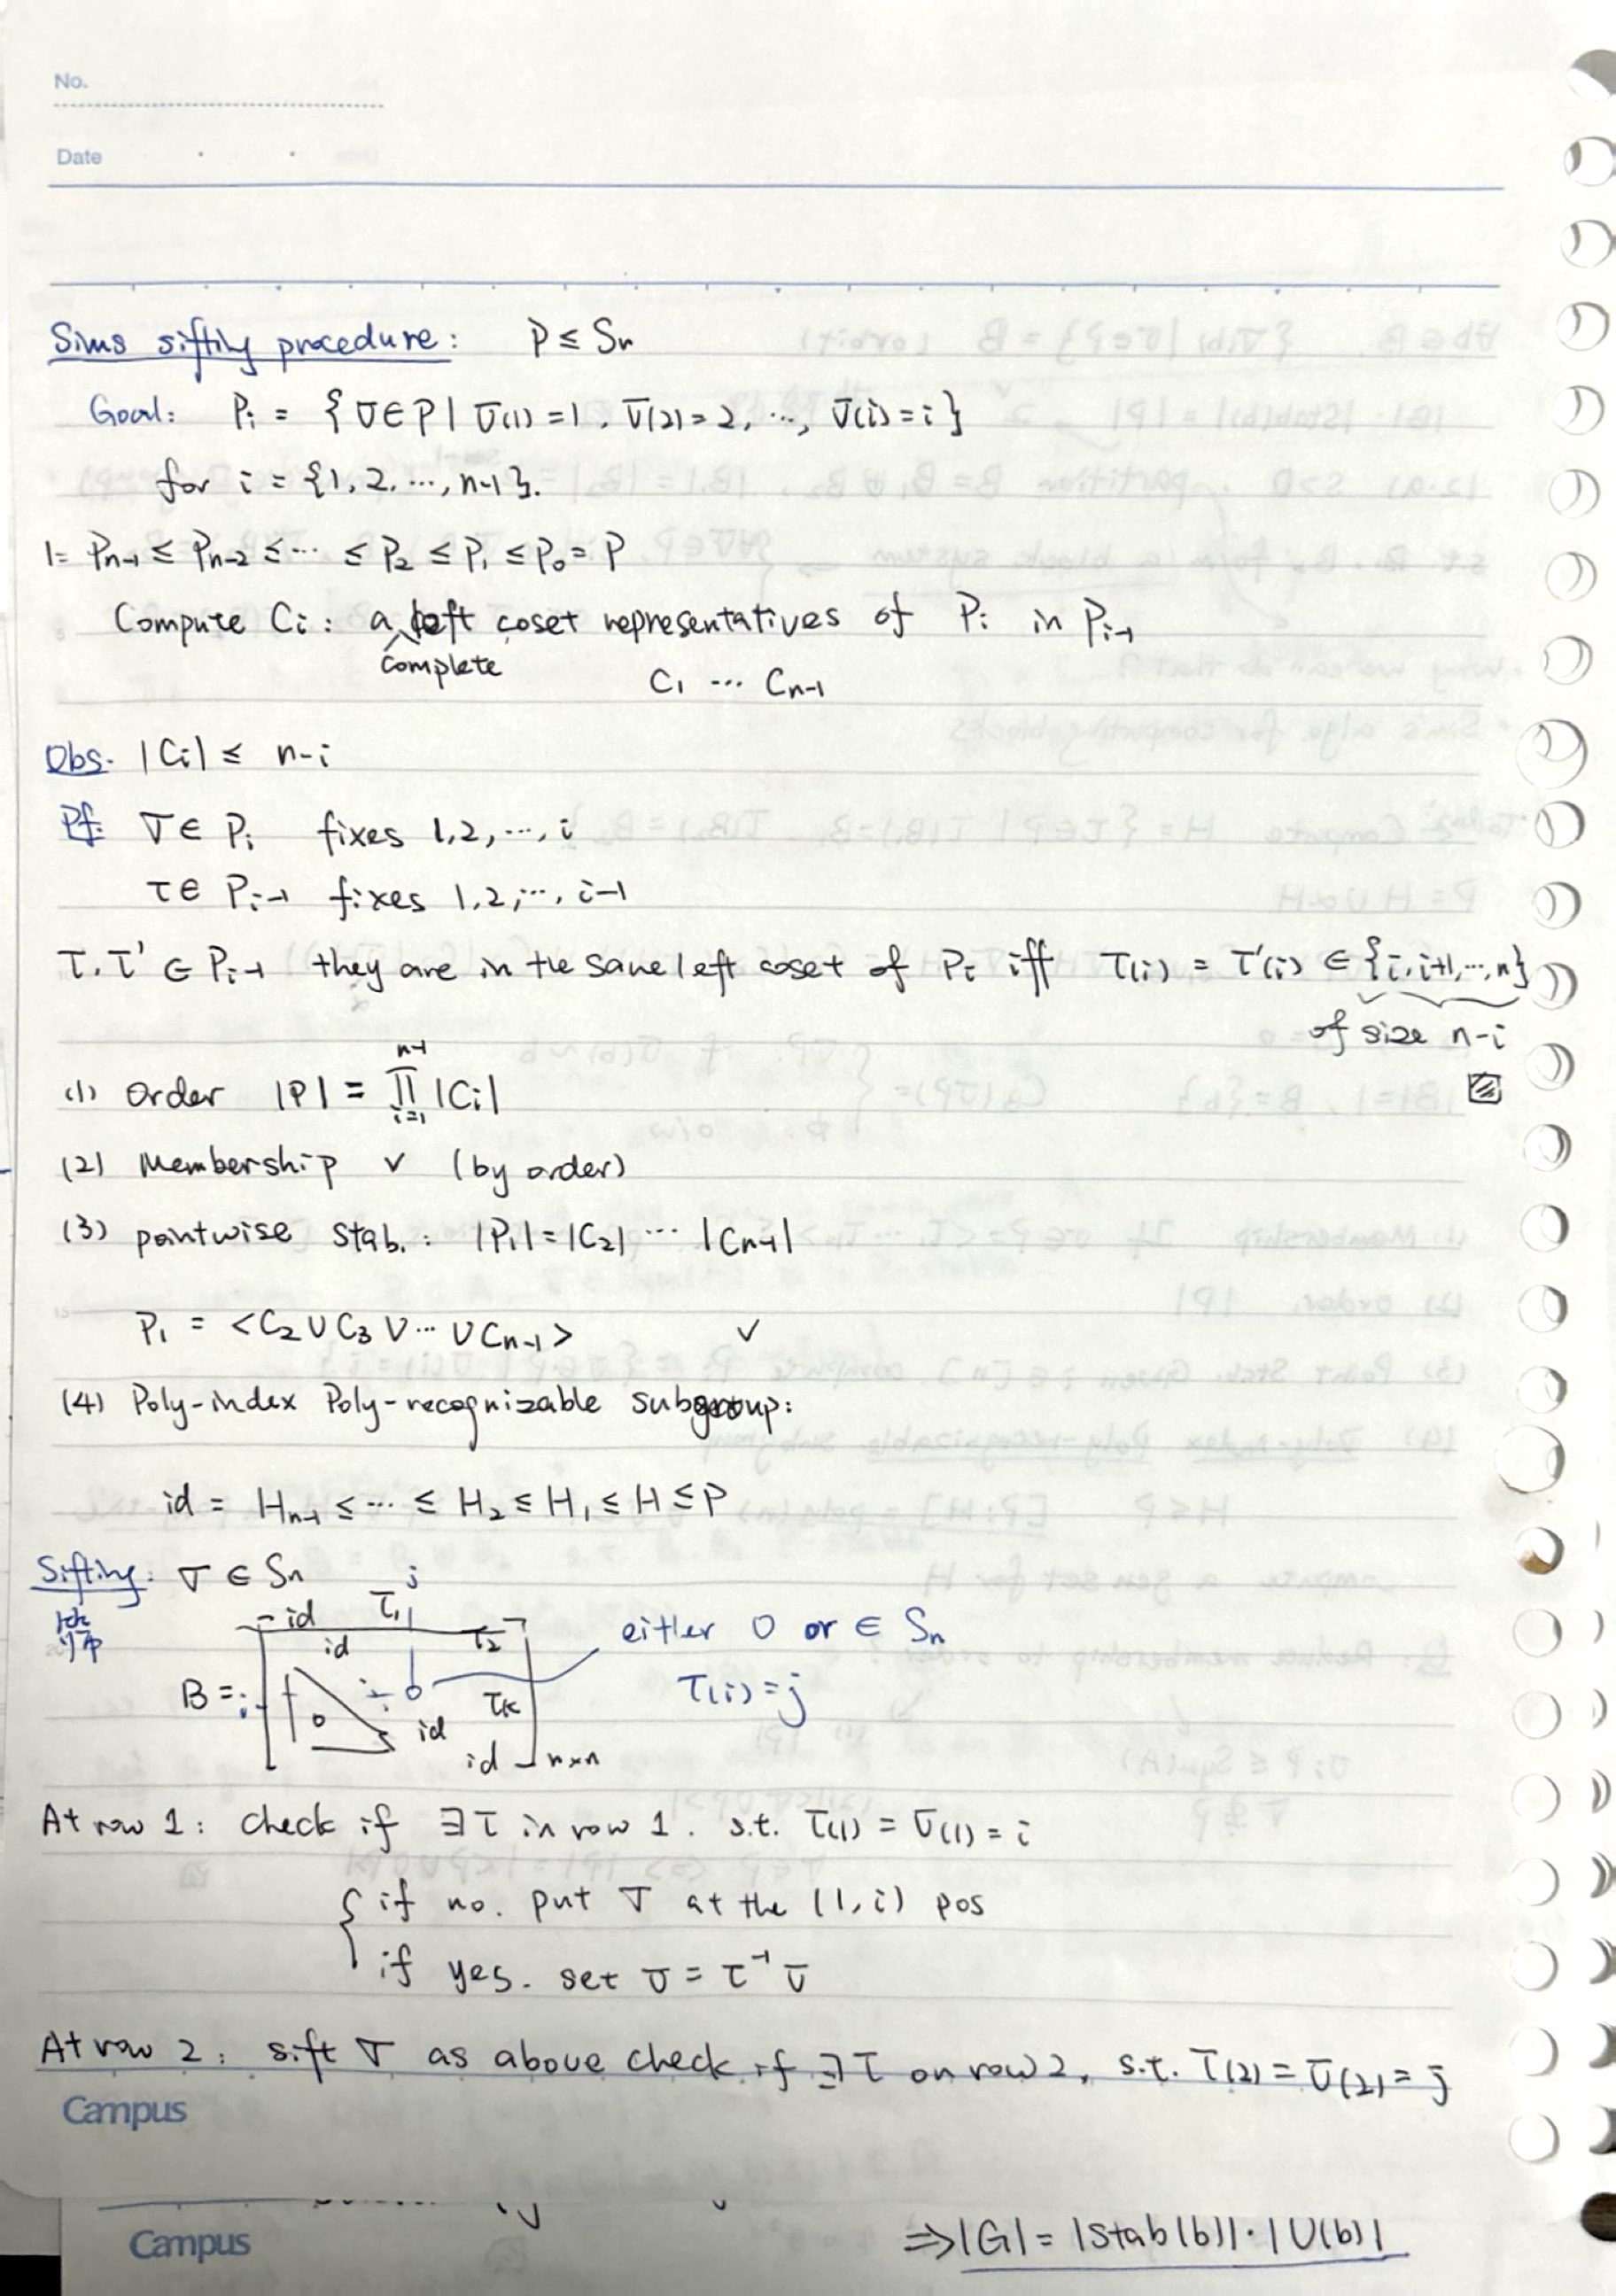 No.
Date
Sims sifting procedure: P ≤ Sn
Goal: Pi = {σ∈P | σ(1)=1, σ(2)=2, ..., σ(i)=i}
for i = {1,2,...,n-1}.
1= Pn-1 ≤ Pn-2 ≤ ... ≤ P2 ≤ P1 ≤ P0 = P
Compute Ci: a left coset representatives of Pi in Pi-1
complete
C1 ... Cn-1
Obs. |Ci| ≤ n-i
Pf: σ∈ Pi fixes 1,2,...,i
τ∈ Pi-1 fixes 1,2,...,i-1
τ, τ' ∈ Pi-1 they are in the same left coset of Pi iff τ(i) = τ'(i) ∈ {i,i+1,...,n}
of size n-i
(1) Order |P| = ∏ i=1 n-1 |Ci|
(2) Membership ✓ (by order)
(3) pointwise stab.: |P1|=|C2| ... |Cn-1|
P1 = <C2 ∪ C3 ∪ ... ∪ Cn-1> ✓
(4) Poly-index Poly-recognizable subgroup:
id = Hn-1 ≤ ... ≤ H2 ≤ H1 ≤ H ≤ P
Sifting: σ ∈ Sn
j
id τ1
id τ2
either 0 or ∈ Sn
B = i 0 τk
τ(i)=j
id
id n×n
At row 1: check if ∃τ in row 1. s.t. τ(1) = σ(1) = i
if no. put σ at the (1,i) pos
if yes. set σ = τ⁻¹ σ
At row 2: sift σ as above check if ∃τ on row 2, s.t. τ(2) = σ(2) = j
Campus
⇒|G| = |Stab(b)|·|U(b)|
Campus